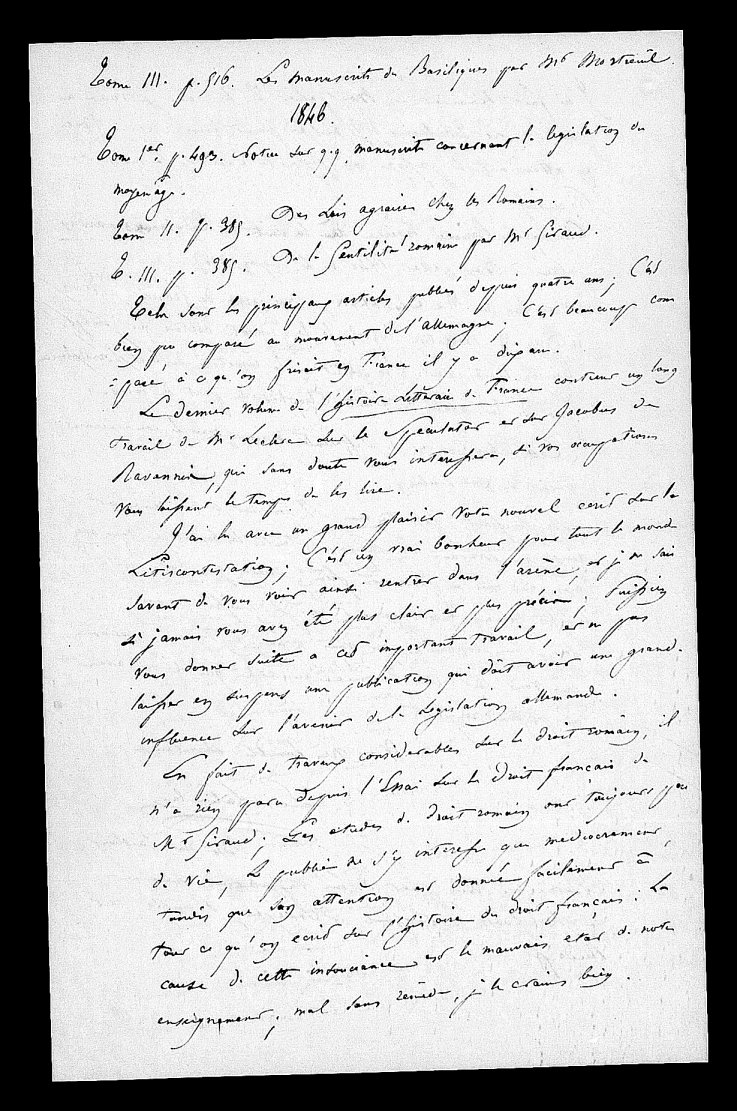 Tome III. p. 516. Les manuscrits des Basiliques par Mr Mortreuil
1846.
Tome 1er. p. 493. Notice sur q.q. manuscrits concernant la legislation du
moyen âge.
Tom II. p. 385. Des Lois agraires chez les Romains.
T. III. p. 385. De la Gentilité romaine par Mr Giraud.
Tels sont les principaux articles publiés depuis quatre ans; C'est
bien peu comparé au mouvement de l'allemagne; C'est beaucoup com
=paré à ce qu'on faisait en France il y a dix ans.
Le dernier volume de l'histoire Litteraire de France contient un long
travail de Mr Leclerc sur le Speculator et sur Jacobus de
Ravannis, qui sans doute vous interessera, si vos occupations
vous laissent le temps de les lire.
J'ai lu avec un grand plaisir votre nouvel ecrit sur la
Litiscontestation; C'est un vrai bonheur pour tout le monde
savant de vous voir ainsi rentrer dans l'arêne, et je ne sais
si jamais vous avez été plus clair et plus précis; Puissiez
vous donner suite a cet important travail, et ne pas
laisser en suspens une publication qui doit avoir une grande
influence sur l'avenir de la Legislation allemande.
En fait de travaux considerables sur le droit romain, il
n'a rien paru depuis l'Essai sur le Droit français de
Mr Giraud; Les etudes de droit romain ont toujours peu
de vie, Le public ne s'y interesse que mediocrement,
tandis que son attention est donnée facilement à
tout ce qu'on ecrit sur l'histoire du droit français: La
cause de cette insouciance est le mauvais etat de notre
enseignement; mal sans remède, je le crains bien.